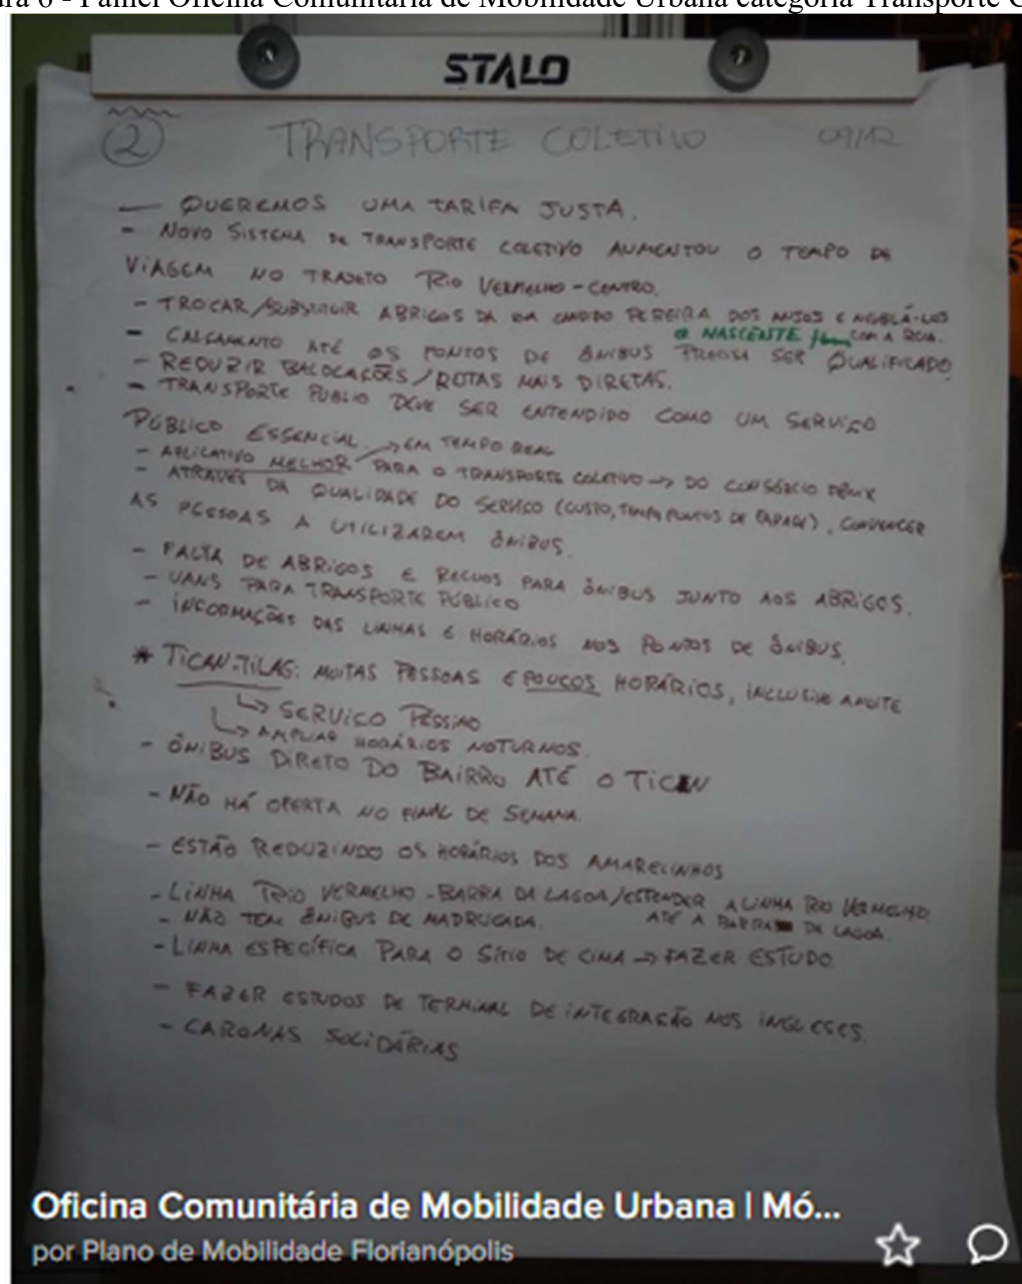 6 - Painel Oficina Comunitária de Mobilidade Urbana categoria Transporte C
STALO
2 TRANSPORTE COLETIVO 09/12
— QUEREMOS UMA TARIFA JUSTA.
- NOVO SISTEMA DE TRANSPORTE COLETIVO AUMENTOU O TEMPO DE
VIAGEM NO TRAJETO RIO VERMELHO - CENTRO.
- TROCAR/SUBSTITUIR ABRIGOS DA PEREIRA DOS ANJOS E
NASCENTE COM A RUA.
- CALÇAMENTO ATÉ OS PONTOS DE ÔNIBUS PRECISA SER QUALIFICADO
- REDUZIR BALDEAÇÕES/ROTAS MAIS DIRETAS.
- TRANSPORTE PUBLIO DEVE SER ENTENDIDO COMO UM SERVIÇO
PÚBLICO ESSENCIAL. → EM TEMPO REAL
- APLICATIVO MELHOR PARA O TRANSPORTE COLETIVO → DO CONSÓRCIO FÊNIX
- ATRAVÉS DA QUALIDADE DO SERVIÇO (CUSTO, TEMPO, PONTOS DE PARADA), CONVENCER
AS PESSOAS A UTILIZAREM ÔNIBUS.
- FALTA DE ABRIGOS E RECUOS PARA ÔNIBUS JUNTO AOS ABRIGOS.
- VANS PARA TRANSPORTE PÚBLICO
- INFORMAÇÕES DAS LINHAS E HORÁRIOS NOS PONTOS DE ÔNIBUS.
* TICAN-TILAG: MUITAS PESSOAS E POUCOS HORÁRIOS, INCLUSIVE ANOITE
↳ SERVIÇO PÉSSIMO
↳ AMPLIAR HORÁRIOS NOTURNOS.
- ÔNIBUS DIRETO DO BAIRRO ATÉ O TICAN
- NÃO HÁ OFERTA NO FINAL DE SEMANA.
- ESTÃO REDUZINDO OS HORÁRIOS DOS AMARELINHOS
- LINHA RIO VERMELHO - BARRA DA LAGOA/ESTENDER A LINHA RIO VERMELHO
ATÉ A BARRA DE LAGOA.
- NÃO TEM ÔNIBUS DE MADRUGADA.
- LINHA ESPECÍFICA PARA O SÍTIO DE CIMA → FAZER ESTUDO
- FAZER ESTUDOS DE TERMINAL DE INTEGRAÇÃO NOS INGLESES.
- CARONAS SOLIDÁRIAS
Oficina Comunitária de Mobilidade Urbana | Mó...
por Plano de Mobilidade Florianópolis